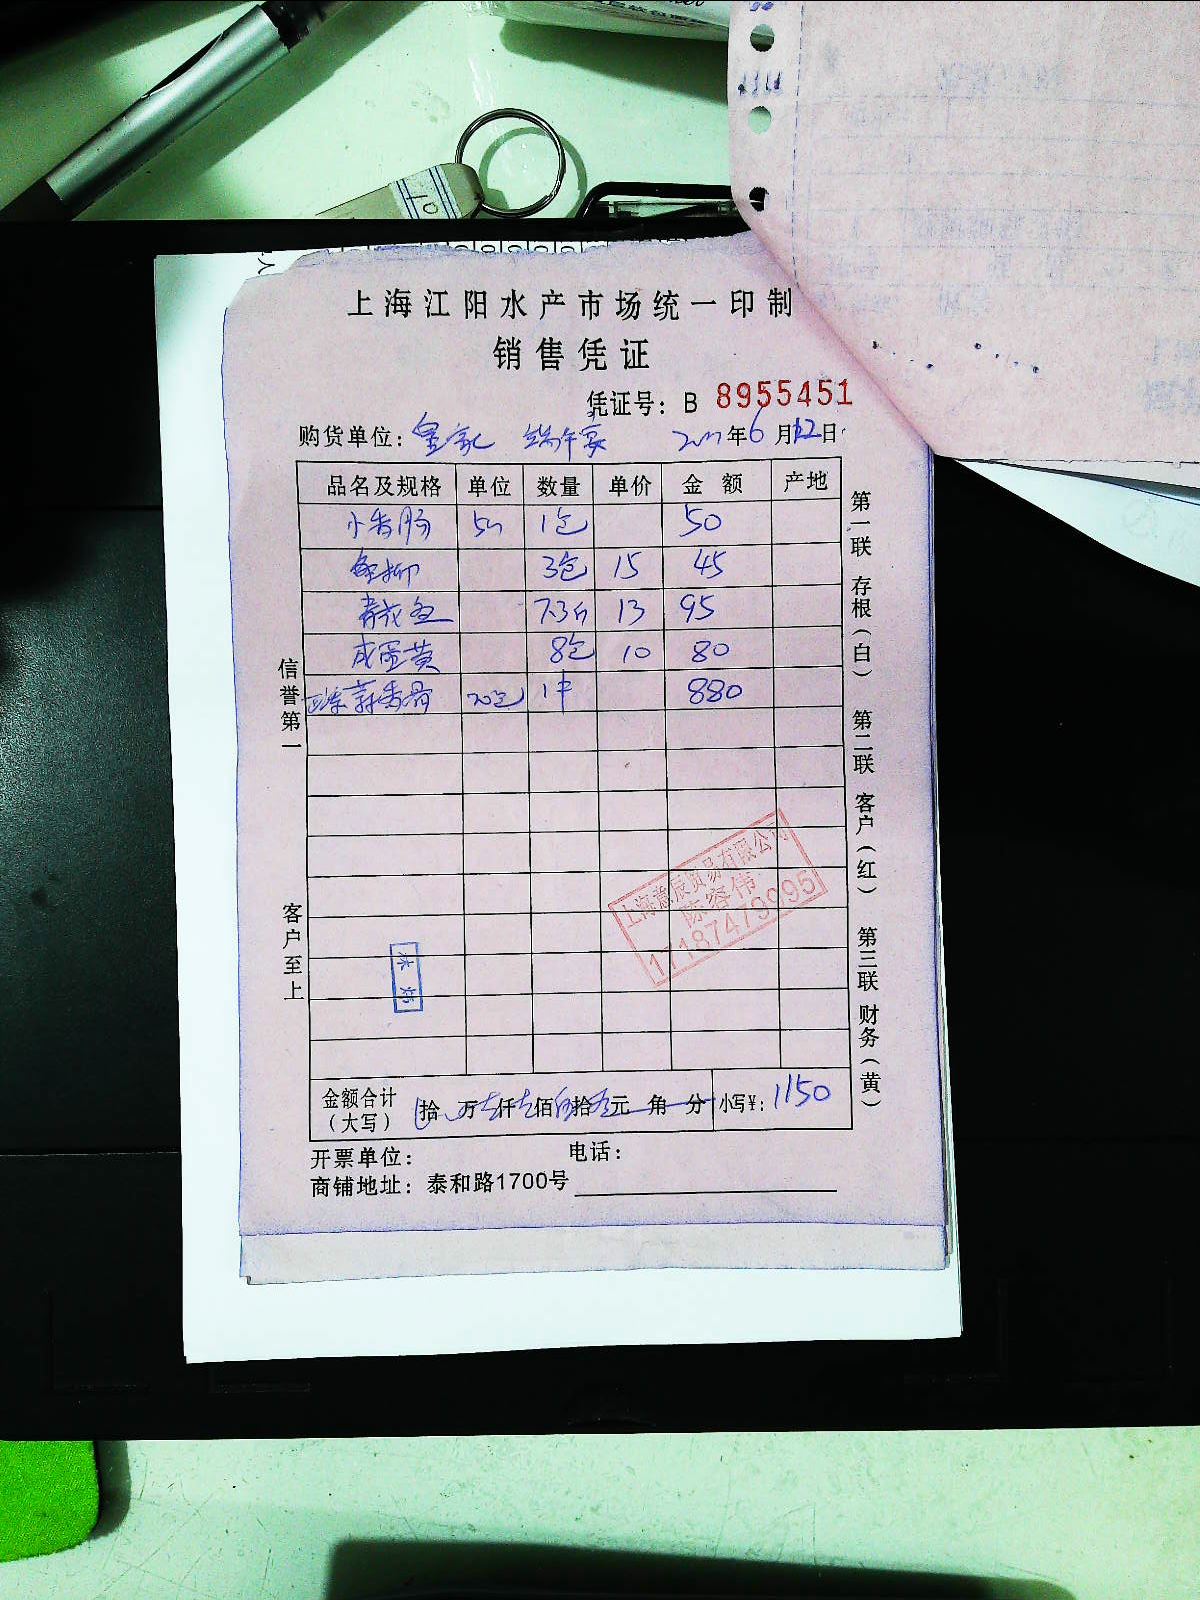 上海江阳水产市场统一印制
销售凭证
凭证号：B 8955451
购货单位： 年6月12日
品名及规格 单位 数量 单价 金额 产地
小香肠 1包 50
3包 15 45
青花鱼 7.3斤 13 95
咸蛋黄 8包 10 80
蒜香骨 20包 1件 880
金额合计（大写） 拾 万 仟 佰 拾 元 角 分 小写¥：1150
开票单位： 电话：
商铺地址：泰和路1700号
信誉第一
客户至上
第一联 存根（白）
第二联 客户（红）
第三联 财务（黄）
上海意辰贸易有限公司
陈容伟
17187479095
10